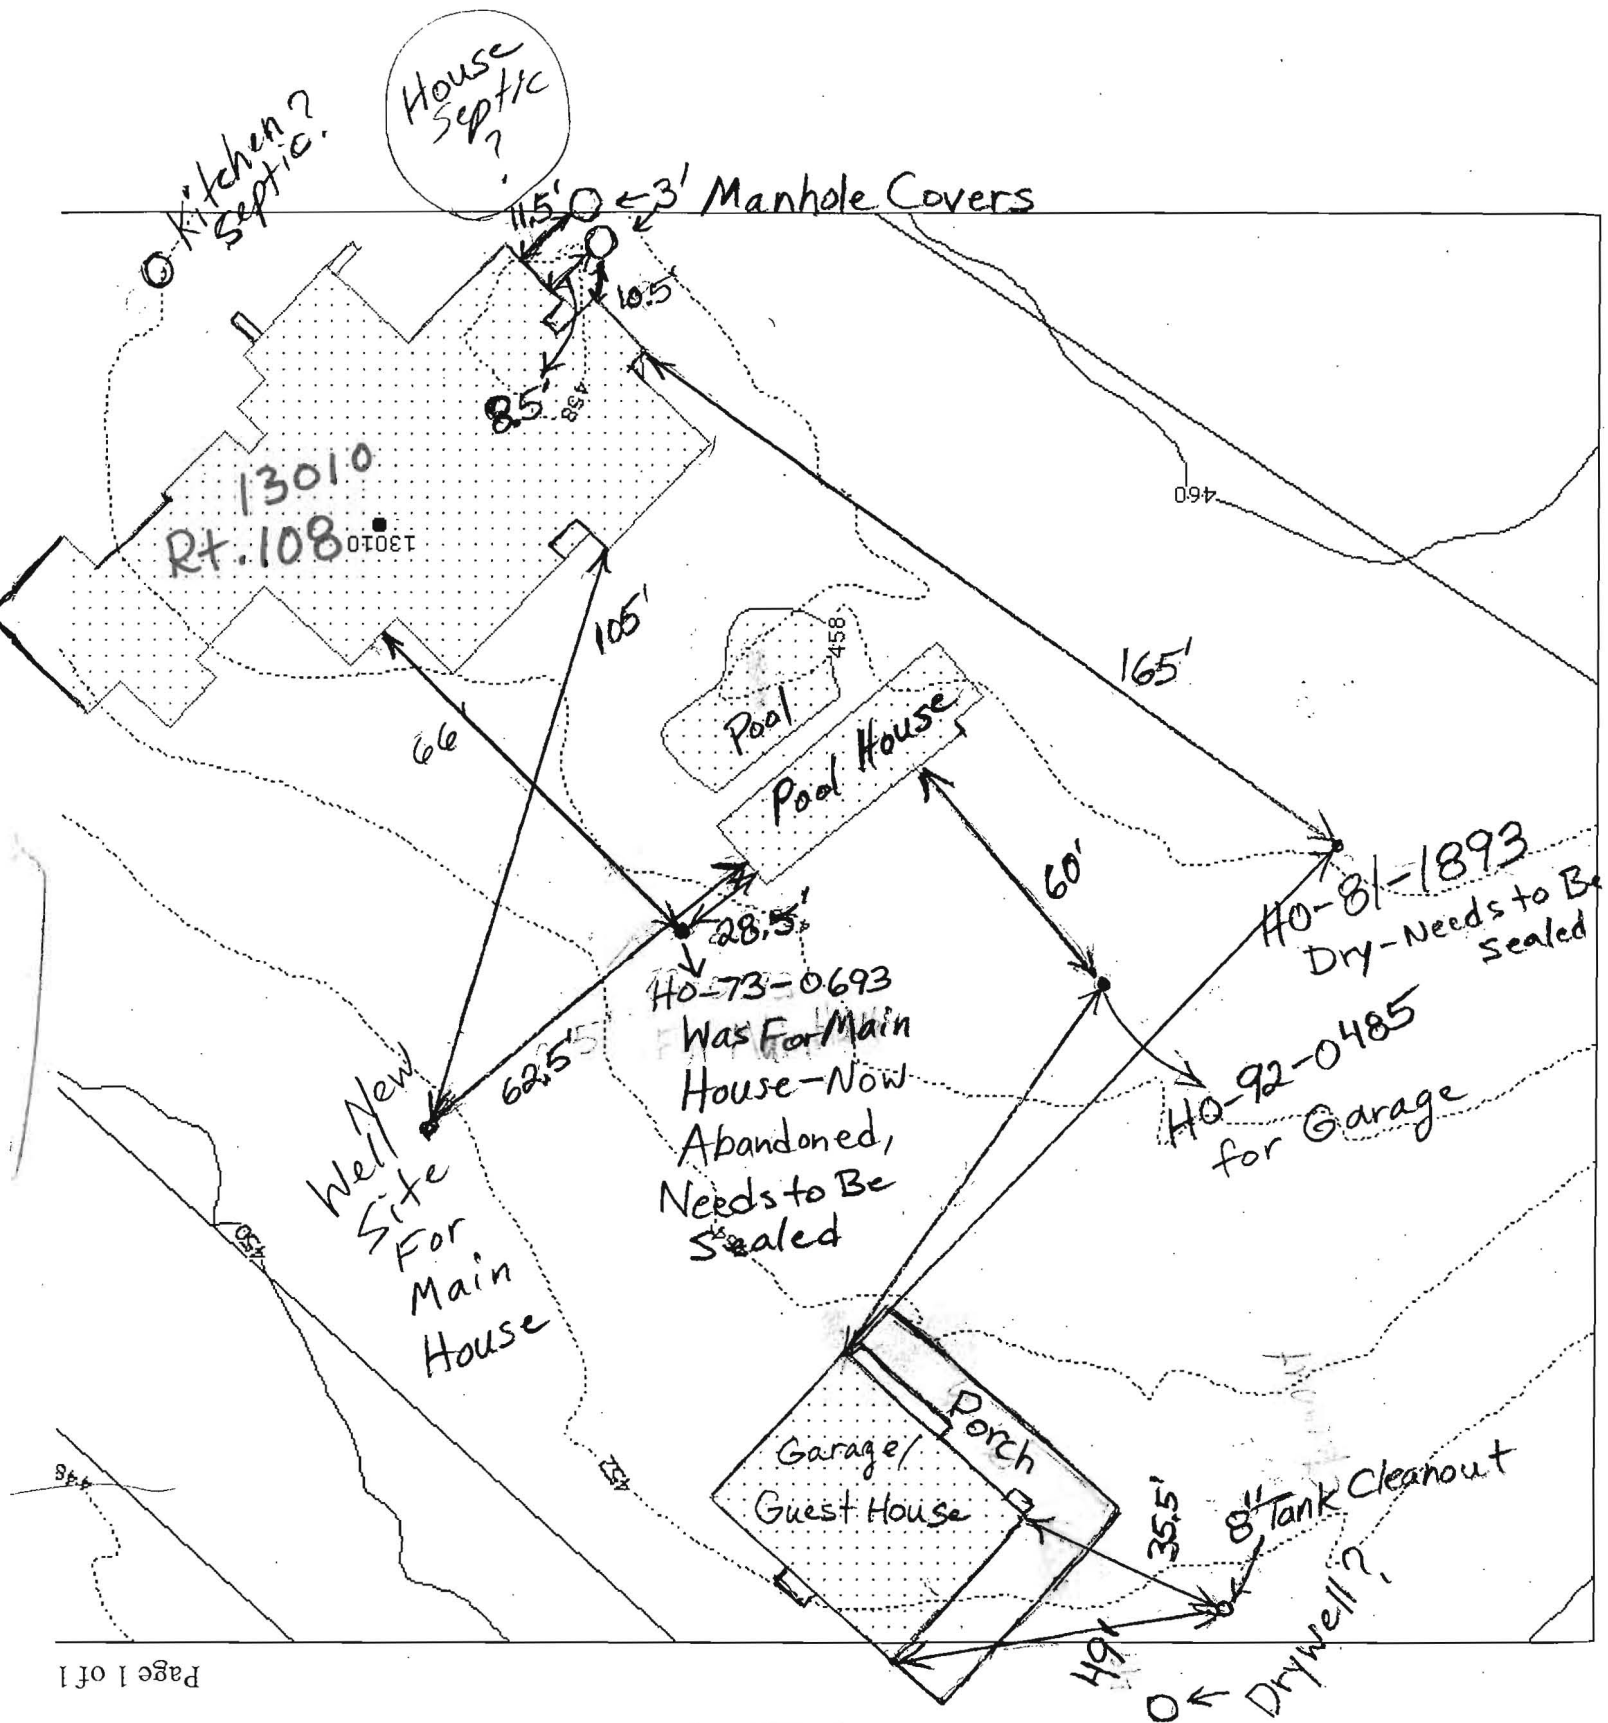 House
Septic
?
Kitchen?
Septic?
11.5'
3' Manhole Covers
10.5'
8.5'
458
460
13010
Rt. 108
13010
105'
458
165'
66'
Pool
Pool House
60'
HO-81-1893
Dry-Needs to Be
Sealed
28.5'
HO-73-0693
Was For Main
House-Now
Abandoned,
Needs to Be
Sealed
62.5'
HO-92-0485
for Garage
New
Well
Site
For
Main
House
450
452
448
Porch
Garage/
Guest House
35.5'
8" Tank Cleanout
49'
Drywell?
Page 1 of 1